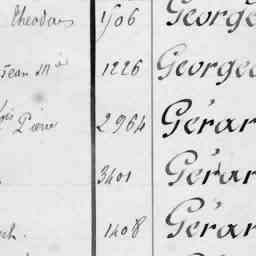 Theodore 1506 George
Jean Mie 1226 George
Pierre 2964 Gérar
3401 Gérar
ch. 1408 Gérar